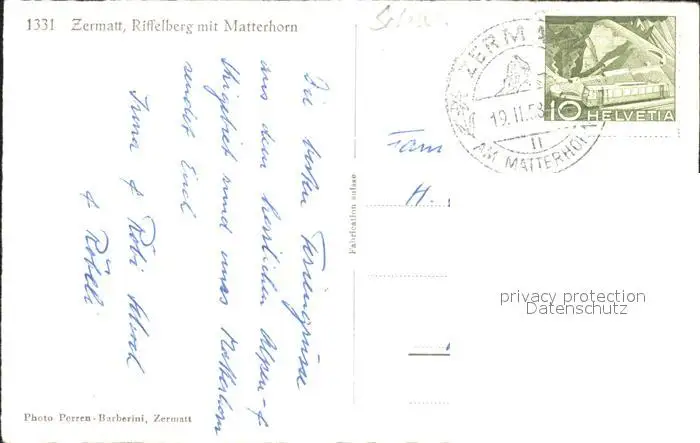 1331 Zermatt, Riffelberg mit Matterhorn
Die besten Feriengrüsse
aus dem herrlichen Alpen- &
Skigebiet rund ums Matterhorn
sendet Euch
Irma & Röbi
& Röbeli
Photo Perren-Barberini, Zermatt
Fabrication suisse
ZERMATT
19.II.53
II
AM MATTERHORN
10 HELVETIA
Fam
H.
privacy protection
Datenschutz